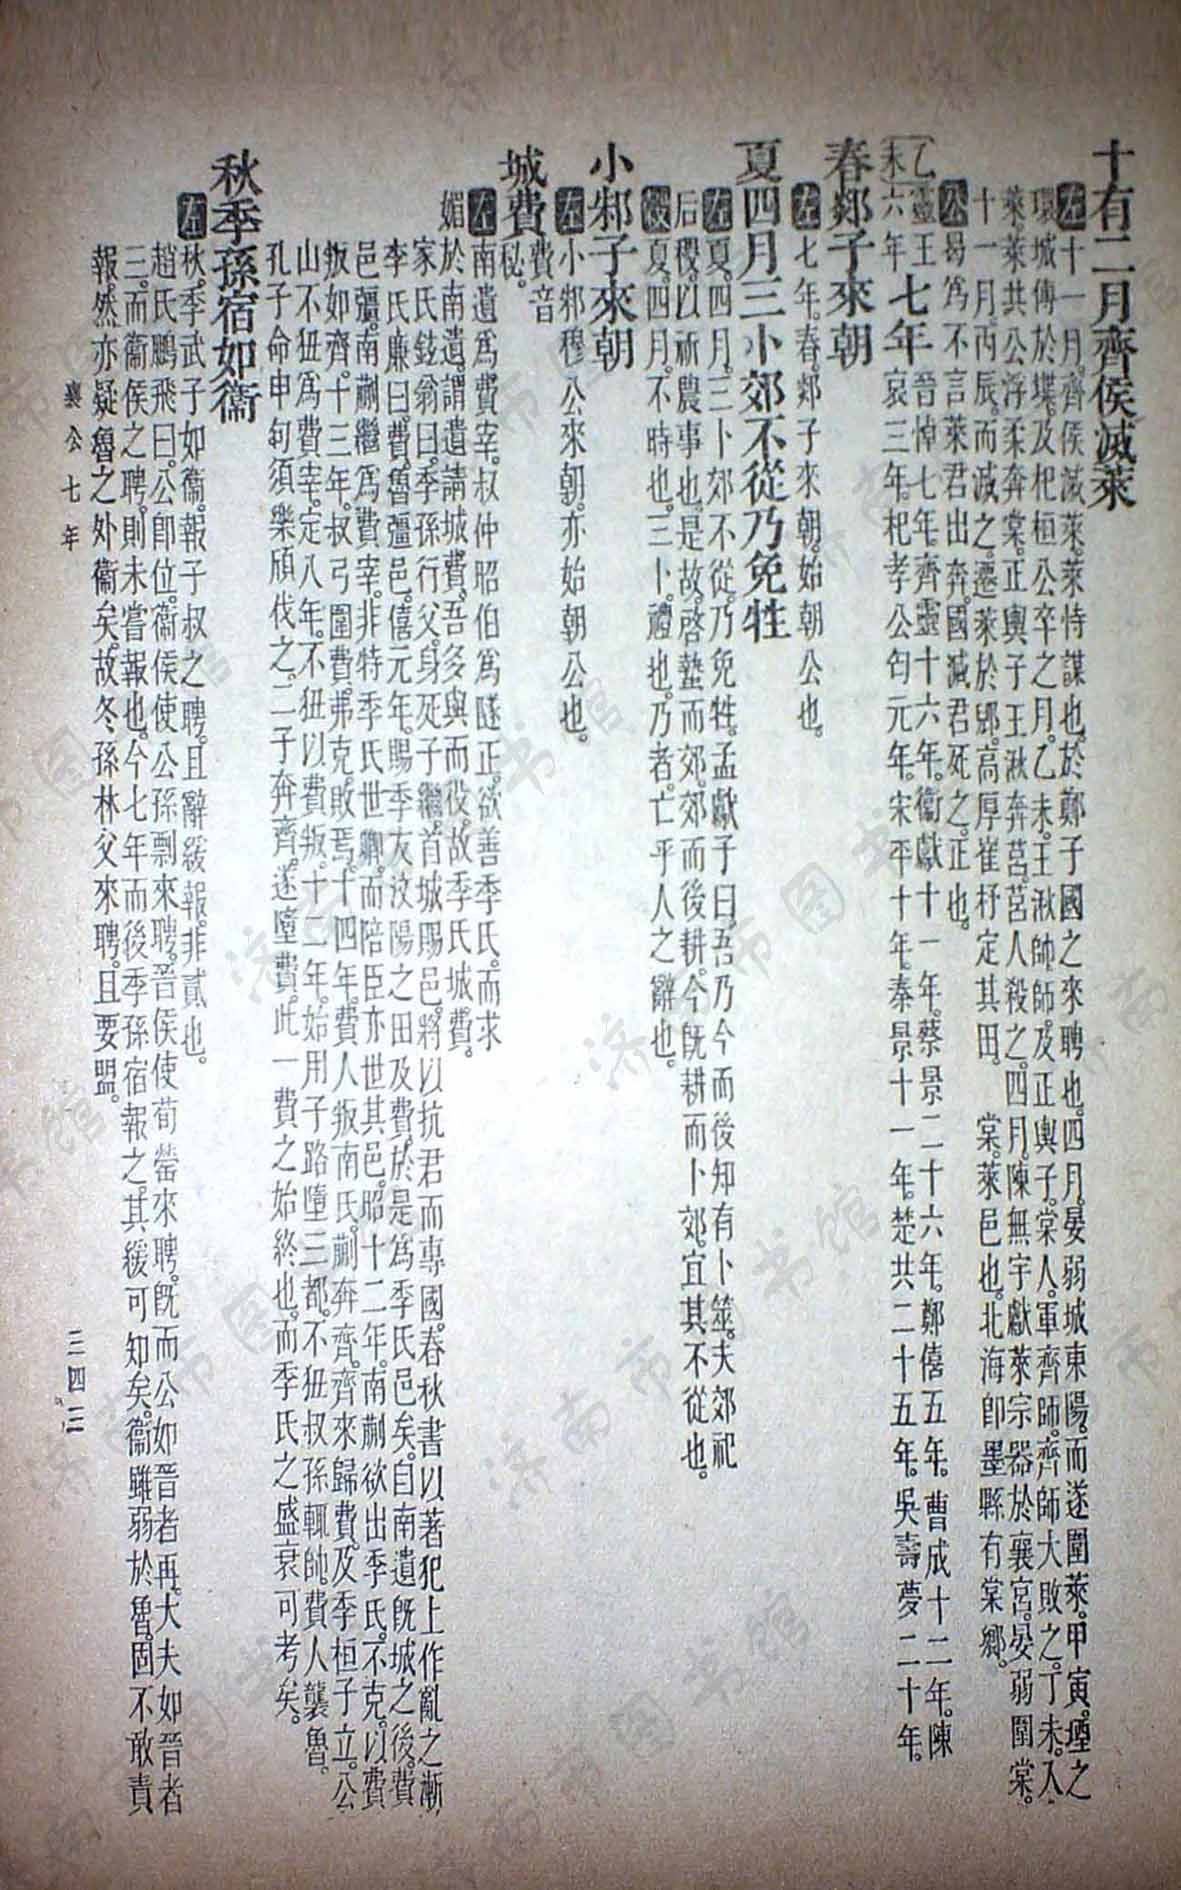 十有二月齊侯滅萊
左十一月。齊侯滅萊。萊恃謀也。於鄭子國之來聘也。四月。晏弱城東陽。而遂圍萊。甲寅。堙之
環城傅於堞。及杞桓公卒之月。乙未。王湫帥師。及正輿子。棠人。軍齊師。齊師大敗之。丁未。入
萊。萊共公浮柔奔棠。正輿子王湫奔莒。莒人殺之。四月。陳無宇獻萊宗器於襄宮。晏弱圍棠。
十一月。丙辰。而滅之。遷萊於郳。高厚崔杼定其田。 棠。萊邑也。北海卽墨縣有棠鄉。
公曷爲不言萊君出奔。國滅君死之。正也。
乙未 靈王六年 七年 晉悼七年。齊靈十六年。衞獻十一年。蔡景二十六年。鄭僖五年。曹成十二年。陳
哀三年。杞孝公匄元年。宋平十年。秦景十一年。楚共二十五年。吳壽夢二十年。
春郯子來朝
左七年。春。郯子來朝。始朝公也。
夏四月三卜郊不從乃免牲
左夏。四月。三卜郊不從。乃免牲。孟獻子曰。吾乃今而後知有卜筮。夫郊祀
后稷。以祈農事也。是故。啓蟄而郊。郊而後耕。今旣耕而卜郊。宜其不從也。
穀夏。四月。不時也。三卜。禮也。乃者。亡乎人之辭也。
小邾子來朝
左小邾穆公來朝。亦始朝公也。
城費
費音
秘。
左南遺爲費宰。叔仲昭伯爲隧正。欲善季氏。而求
媚於南遺。謂遺請城費。吾多與而役。故季氏城費。
家氏鉉翁曰。季孫行父。身死子繼。首城賜邑。將以抗君而專國。春秋書以著犯上作亂之漸
李氏廉曰。費。魯彊邑。僖元年。賜季友汶陽之田及費。於是爲季氏邑矣。自南遺旣城之後。費
邑彊。南蒯繼爲費宰。非特季氏世卿。而陪臣亦世其邑。昭十二年。南蒯欲出季氏。不克。以費
叛如齊。十三年。叔弓圍費。弗克。敗焉。十四年。費人叛南氏。蒯奔齊。齊來歸費。及季桓子立。公
山不狃爲費宰。定八年。不狃以費叛。十二年。始用子路墮三都。不狃叔孫輒帥。費人襲魯。
孔子命申句須樂頎伐之。二子奔齊。遂墮費。此一費之始終也。而季氏之盛衰可考矣。
秋季孫宿如衞
左秋。季武子如衞。報子叔之聘。且辭緩報。非貳也。
趙氏鵬飛曰。公卽位。衞侯使公孫剽來聘。晉侯使荀罃來聘。旣而公如晉者再。大夫如晉者
三。而衞侯之聘。則未嘗報也。今七年而後季孫宿報之。其緩可知矣。衞雖弱於魯。固不敢責
報。然亦疑魯之外衞矣。故冬孫林父來聘。且要盟。
襄公七年
三四三